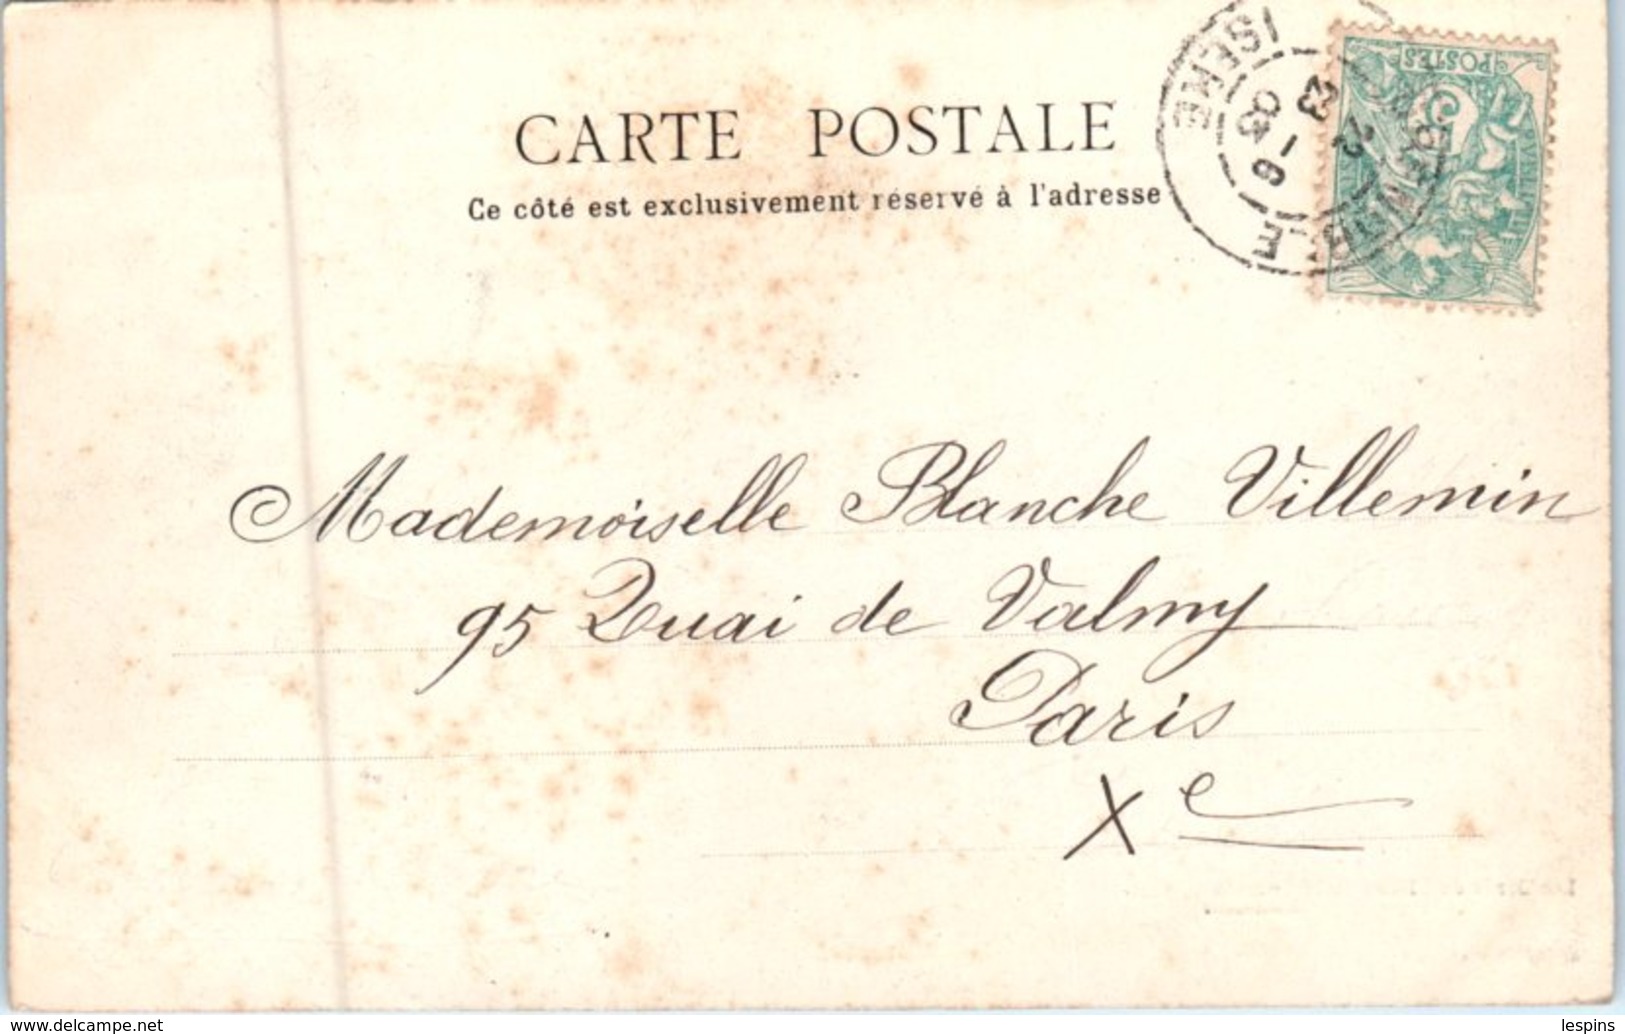 CARTE POSTALE
Ce côté est exclusivement réservé à l'adresse
ISERE
GRENOBLE
23
6-03
POSTES
Mademoiselle Blanche Villemin
95 Quai de Valmy
Paris
Xe
www.delcampe.net
lespins